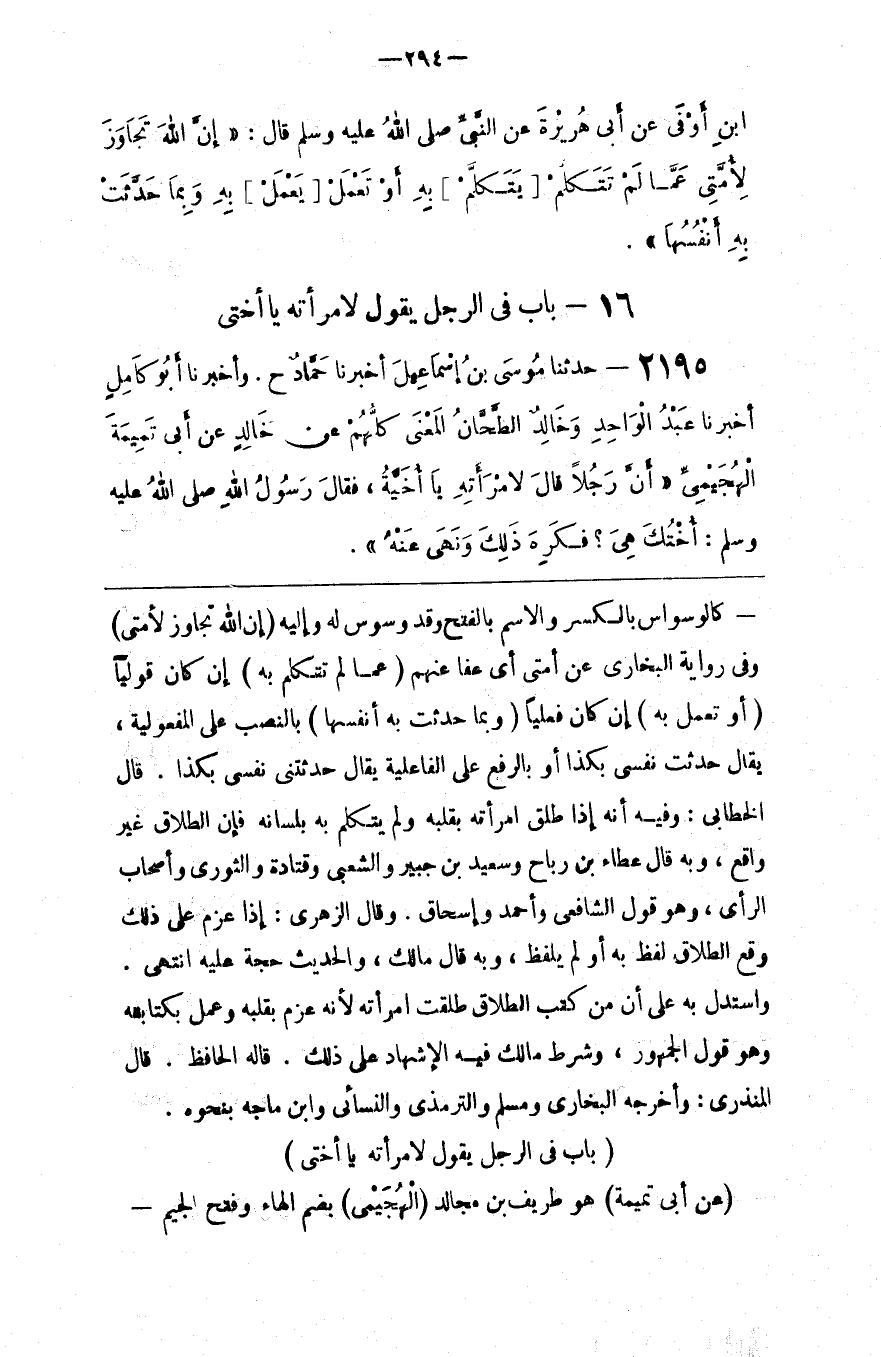 —٢٩٤—
ابنِ أَوْفَى عن أَبى هُرِيْرَةَ عن النَّبىِّ صلى اللهُ عليه وسلم قال : « إِنَّ اللهَ تَجَاوَزَ
لِأُمَّتِى عَمَّا لَمْ تَتَكَلَّمْ [ يَتَكلَّمْ ] بِهِ أَوْ تَعْمَلْ [ يَعْمَلْ ] بِهِ وَبِمَا حَدَّثَتْ
بِهِ أَنْفُسُهَا » .
١٦ — باب فى الرجل يقول لامرأته يا أختى
٢١٩٥ — حدثنا مُوسَى بنُ إِسْمَاعِيلَ أخبرنا حَمَّادٌ ح . وأخبرنا أَبُو كَامِلٍ
أخبرنا عَبْدُ الْوَاحِدِ وَخَالِدٌ الطَّحَّانُ الَمْعْنَى كلُّهُمْ عن خَالِدٍ عن أَبى تَمِيمَةَ
الْهُجَيْمِىِّ « أَنَّ رَجُلاً قالَ لامْرَأَتِهِ يَا أُخَيَّةُ ، فقالَ رَسُولُ اللهِ صلى اللهُ عليه
وسلم : أُخْتُكَ هِىَ ؟ فَكَرِهَ ذَلِكَ وَنَهَى عَنْهُ » .
— كالوسواس بالكسر والاسم بالفتح وقد وسوس له وإليه (إن الله تجاوز لأمتى)
وفى رواية البخارى عن أمتى أى عفا عنهم ( عما لم تتكلم به ) إن كان قولياً
( أو تعمل به ) إن كان فعلياً ( وبما حدثت به أنفسها ) بالنصب على المفعولية ،
يقال حدثت نفسى بكذا أو بالرفع على الفاعلية يقال حدثتنى نفسى بكذا . قال
الخطابى : وفيه أنه إذا طلق امرأته بقلبه ولم يتكلم به بلسانه فإن الطلاق غير
واقع ، وبه قال عطاء بن رباح وسعيد بن جبير والشعبى وقتادة والثورى وأصحاب
الرأى ، وهو قول الشافعى وأحمد وإسحاق . وقال الزهرى : إذا عزم على ذلك
وقع الطلاق لفظ به أو لم يلفظ ، وبه قال مالك ، والحديث حجة عليه انتهى .
واستدل به على أن من كتب الطلاق طلقت امرأته لأنه عزم بقلبه وعمل بكتابته
وهو قول الجمهور ، وشرط مالك فيه الإشهاد على ذلك . قاله الحافظ . قال
المنذرى : وأخرجه البخارى ومسلم والترمذى والنسائى وابن ماجه بنحوه .
( باب فى الرجل يقول لامرأته يا أختى )
(عن أبى تميمة) هو طريف بن مجالد (الْهُجَيْمِى) بضم الهاء وفتح الجيم —